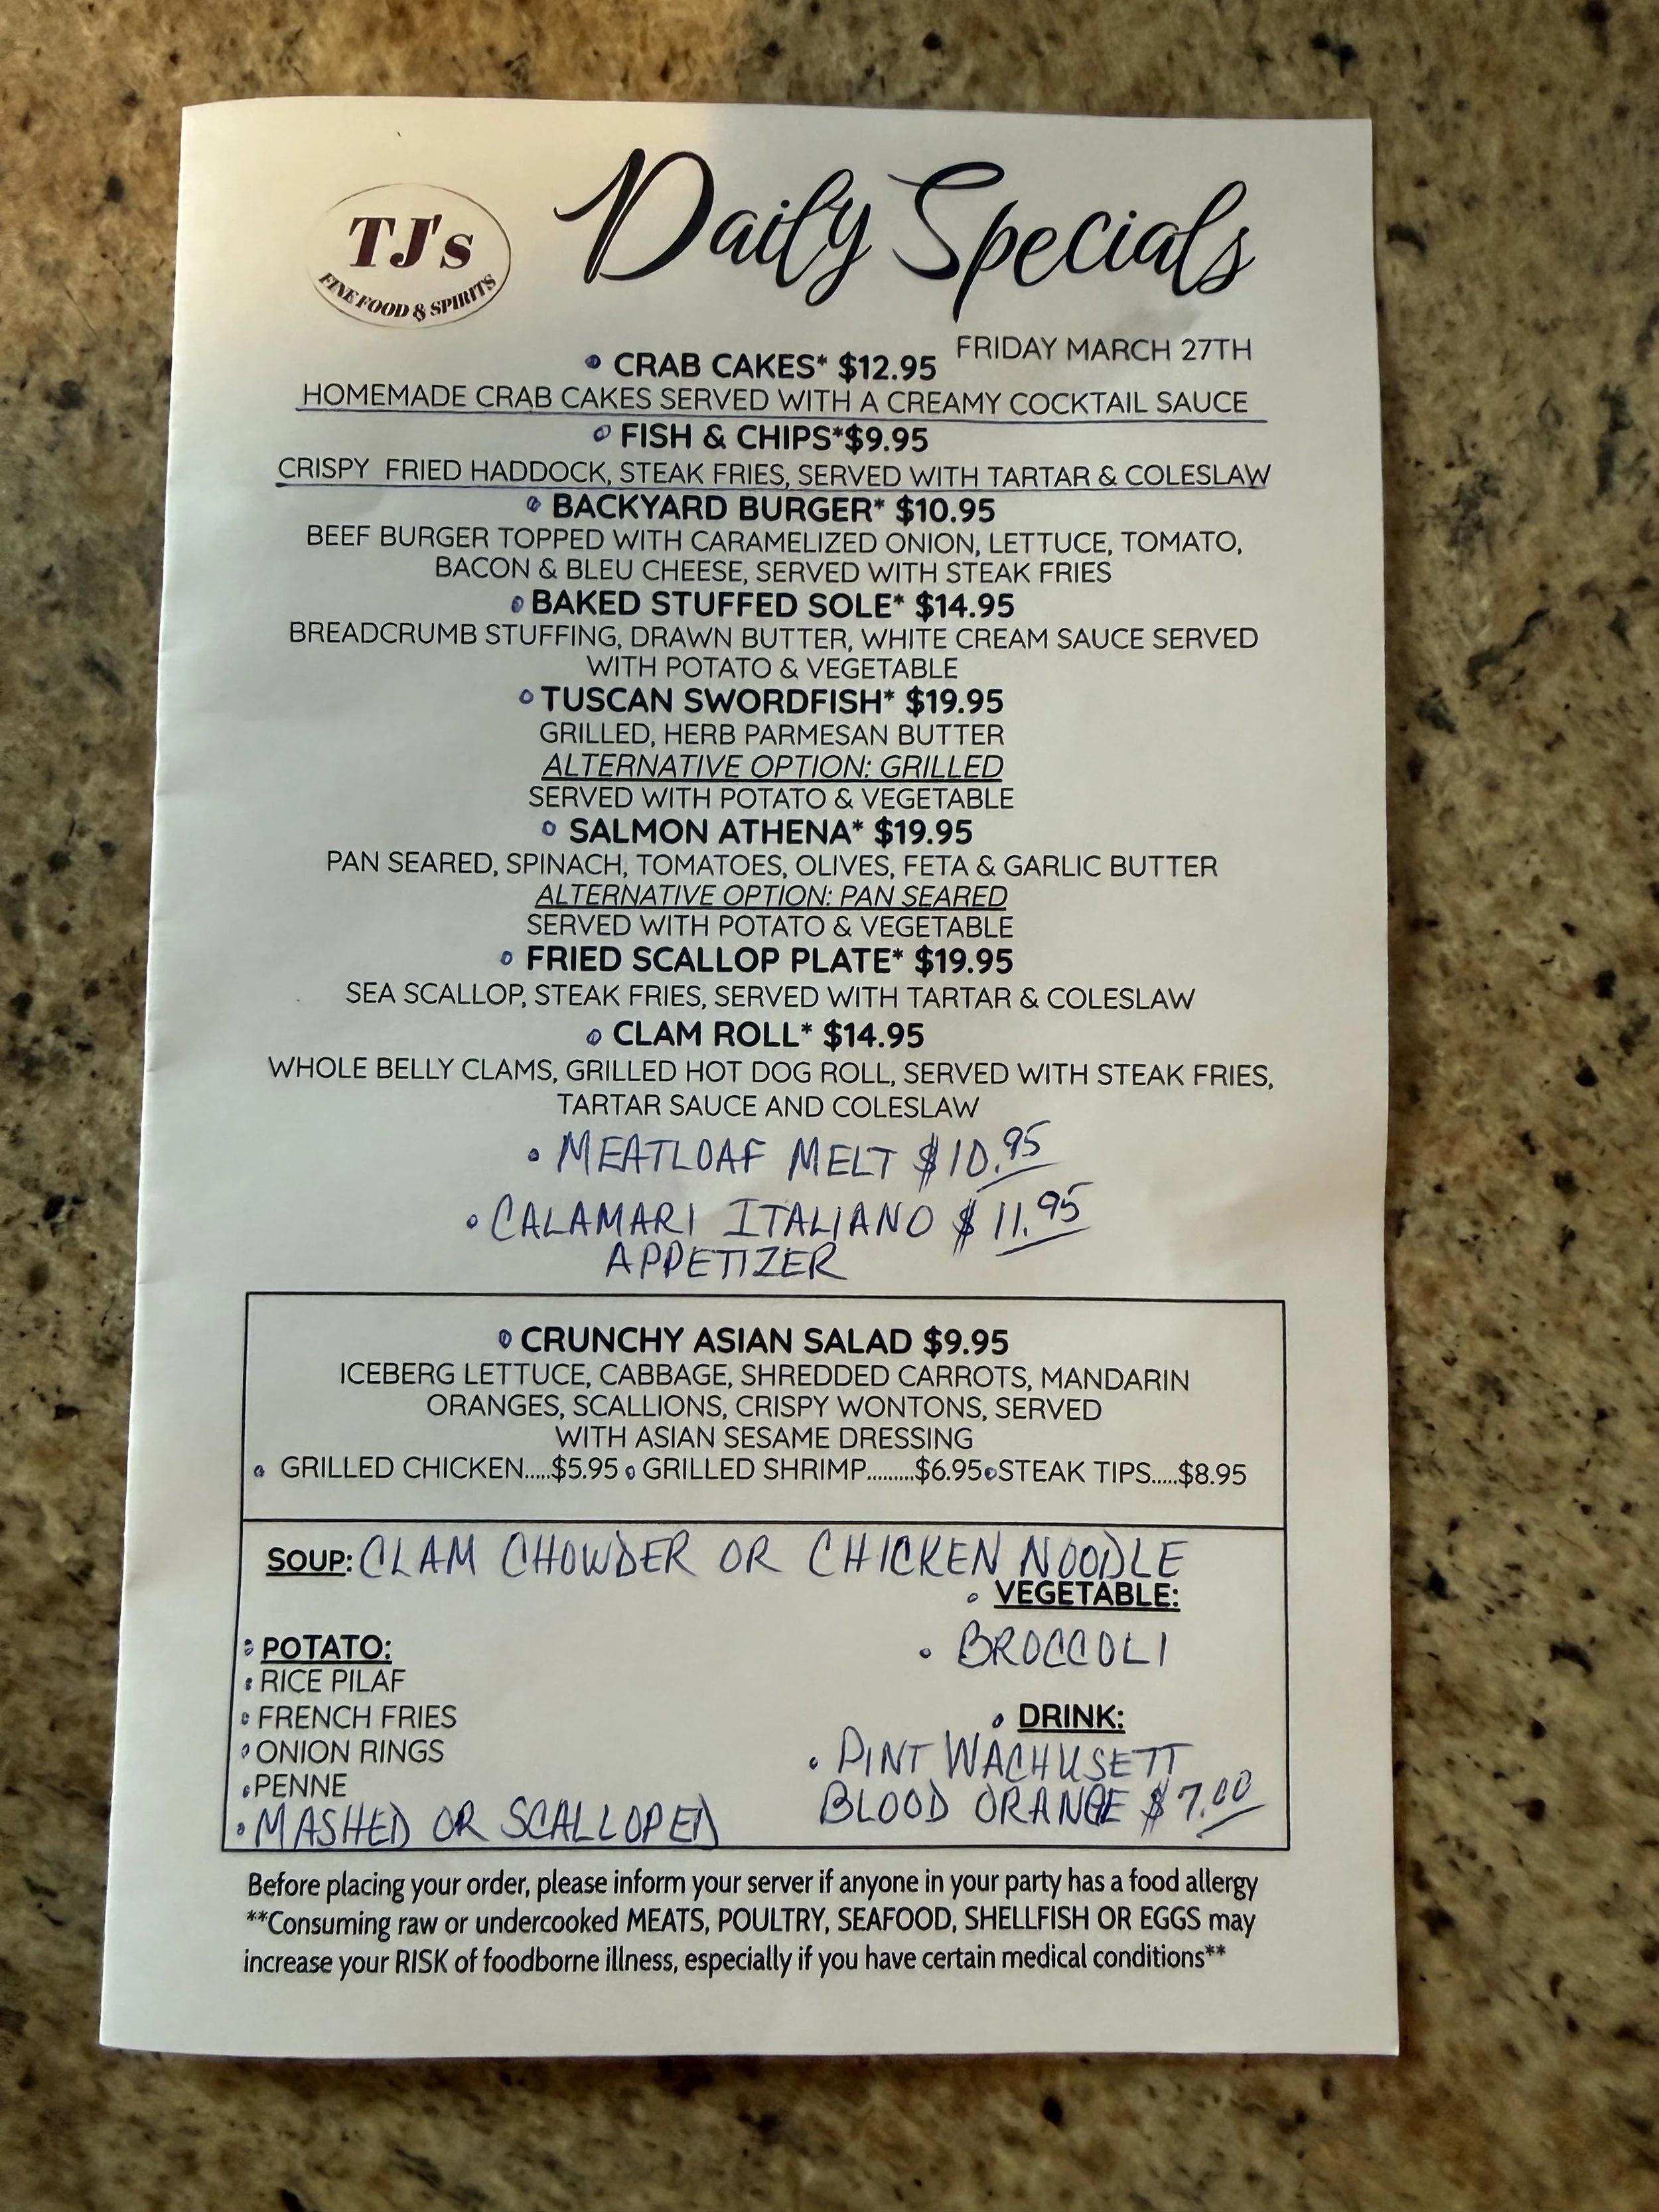 TJ's
FINE FOOD & SPIRITS
Daily Specials
FRIDAY MARCH 27TH
• CRAB CAKES* $12.95
HOMEMADE CRAB CAKES SERVED WITH A CREAMY COCKTAIL SAUCE
• FISH & CHIPS*$9.95
CRISPY FRIED HADDOCK, STEAK FRIES, SERVED WITH TARTAR & COLESLAW
• BACKYARD BURGER* $10.95
BEEF BURGER TOPPED WITH CARAMELIZED ONION, LETTUCE, TOMATO,
BACON & BLEU CHEESE, SERVED WITH STEAK FRIES
• BAKED STUFFED SOLE* $14.95
BREADCRUMB STUFFING, DRAWN BUTTER, WHITE CREAM SAUCE SERVED
WITH POTATO & VEGETABLE
• TUSCAN SWORDFISH* $19.95
GRILLED, HERB PARMESAN BUTTER
ALTERNATIVE OPTION: GRILLED
SERVED WITH POTATO & VEGETABLE
• SALMON ATHENA* $19.95
PAN SEARED, SPINACH, TOMATOES, OLIVES, FETA & GARLIC BUTTER
ALTERNATIVE OPTION: PAN SEARED
SERVED WITH POTATO & VEGETABLE
• FRIED SCALLOP PLATE* $19.95
SEA SCALLOP, STEAK FRIES, SERVED WITH TARTAR & COLESLAW
• CLAM ROLL* $14.95
WHOLE BELLY CLAMS, GRILLED HOT DOG ROLL, SERVED WITH STEAK FRIES,
TARTAR SAUCE AND COLESLAW
• MEATLOAF MELT $10.95
• CALAMARI ITALIANO $11.95
APPETIZER
• CRUNCHY ASIAN SALAD $9.95
ICEBERG LETTUCE, CABBAGE, SHREDDED CARROTS, MANDARIN
ORANGES, SCALLIONS, CRISPY WONTONS, SERVED
WITH ASIAN SESAME DRESSING
• GRILLED CHICKEN.....$5.95 • GRILLED SHRIMP.........$6.95 • STEAK TIPS.....$8.95
SOUP: CLAM CHOWDER OR CHICKEN NOODLE
• VEGETABLE:
• BROCCOLI
• POTATO:
• RICE PILAF
• FRENCH FRIES
• ONION RINGS
• PENNE
• MASHED OR SCALLOPED
• DRINK:
• PINT WACHUSETT
BLOOD ORANGE $7.00
Before placing your order, please inform your server if anyone in your party has a food allergy
**Consuming raw or undercooked MEATS, POULTRY, SEAFOOD, SHELLFISH OR EGGS may
increase your RISK of foodborne illness, especially if you have certain medical conditions**